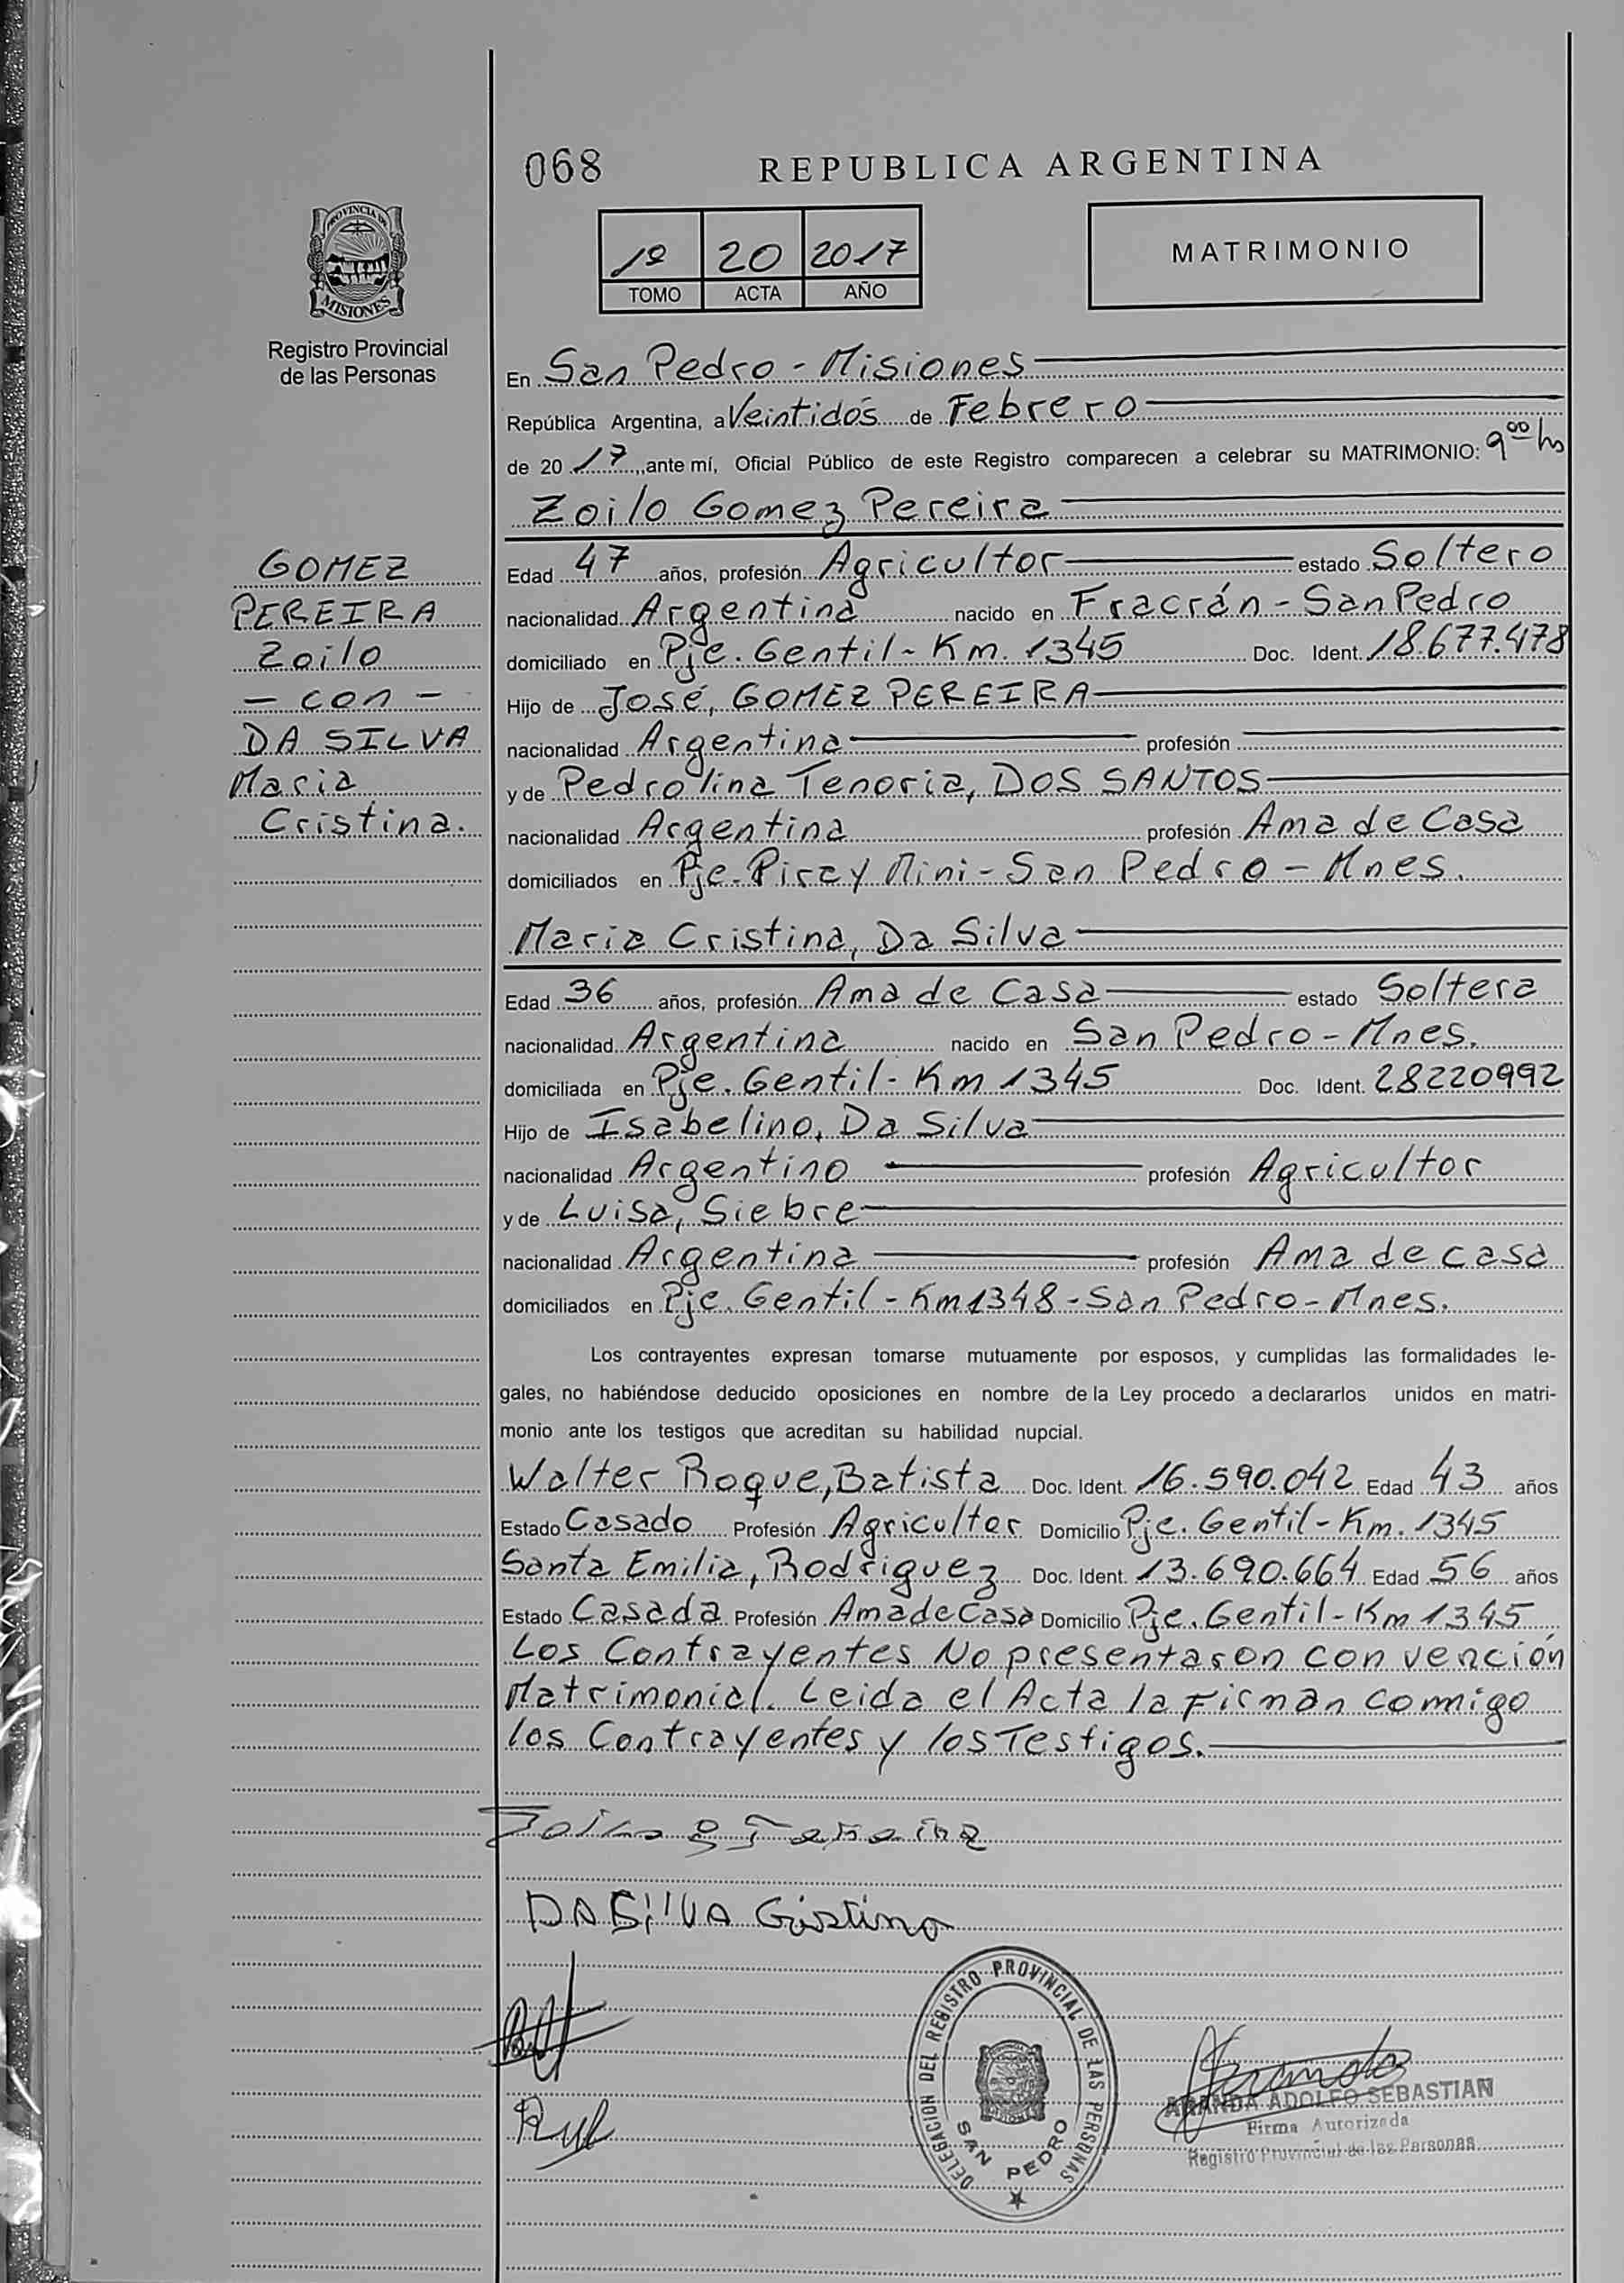 068 REPUBLICA ARGENTINA
1º 20 2017
TOMO ACTA AÑO
MATRIMONIO
PROVINCIA DE MISIONES
Registro Provincial
de las Personas
En San Pedro - Misiones
República Argentina, a Veintidós de Febrero
de 2017, ante mí, Oficial Público de este Registro comparecen a celebrar su MATRIMONIO: 9 00 hs
Zoilo Gomez Pereira
GOMEZ
PEREIRA
Zoilo
- con -
DA SILVA
Maria
Cristina.
Edad 47 años, profesión Agricultor estado Soltero
nacionalidad Argentina nacido en Fracrán - San Pedro
domiciliado en Pje. Gentil - Km. 1345 Doc. Ident. 18.677.478
Hijo de José, GOMEZ PEREIRA
nacionalidad Argentina profesión
y de Pedrolina Tenoria, DOS SANTOS
nacionalidad Argentina profesión Ama de Casa
domiciliados en Pje. Piray Mini - San Pedro - Mnes.
Maria Cristina, Da Silva
Edad 36 años, profesión Ama de Casa estado Soltera
nacionalidad Argentina nacido en San Pedro - Mnes.
domiciliada en Pje. Gentil - Km 1345 Doc. Ident. 28220992
Hijo de Isabelino, Da Silva
nacionalidad Argentino profesión Agricultor
y de Luisa, Siebre
nacionalidad Argentina profesión Ama de casa
domiciliados en Pje. Gentil - Km 1348 - San Pedro - Mnes.
Los contrayentes expresan tomarse mutuamente por esposos, y cumplidas las formalidades le-
gales, no habiéndose deducido oposiciones en nombre de la Ley procedo a declararlos unidos en matri-
monio ante los testigos que acreditan su habilidad nupcial.
Walter Roque, Batista Doc. Ident. 16.590.042 Edad 43 años
Estado Casado Profesión Agricultor Domicilio Pje. Gentil - Km. 1345
Santa Emilia, Rodriguez Doc. Ident. 13.690.664 Edad 56 años
Estado Casada Profesión Ama de Casa Domicilio Pje. Gentil - Km 1345
Los Contrayentes No presentaron convención
Matrimonial. Leida el Acta la Firman conmigo
los Contrayentes y los Testigos.
DA SILVA Cristina
DELEGACION DEL REGISTRO PROVINCIAL DE LAS PERSONAS
SAN PEDRO
ARANDA ADOLFO SEBASTIAN
Firma Autorizada
Registro Provincial de las Personas